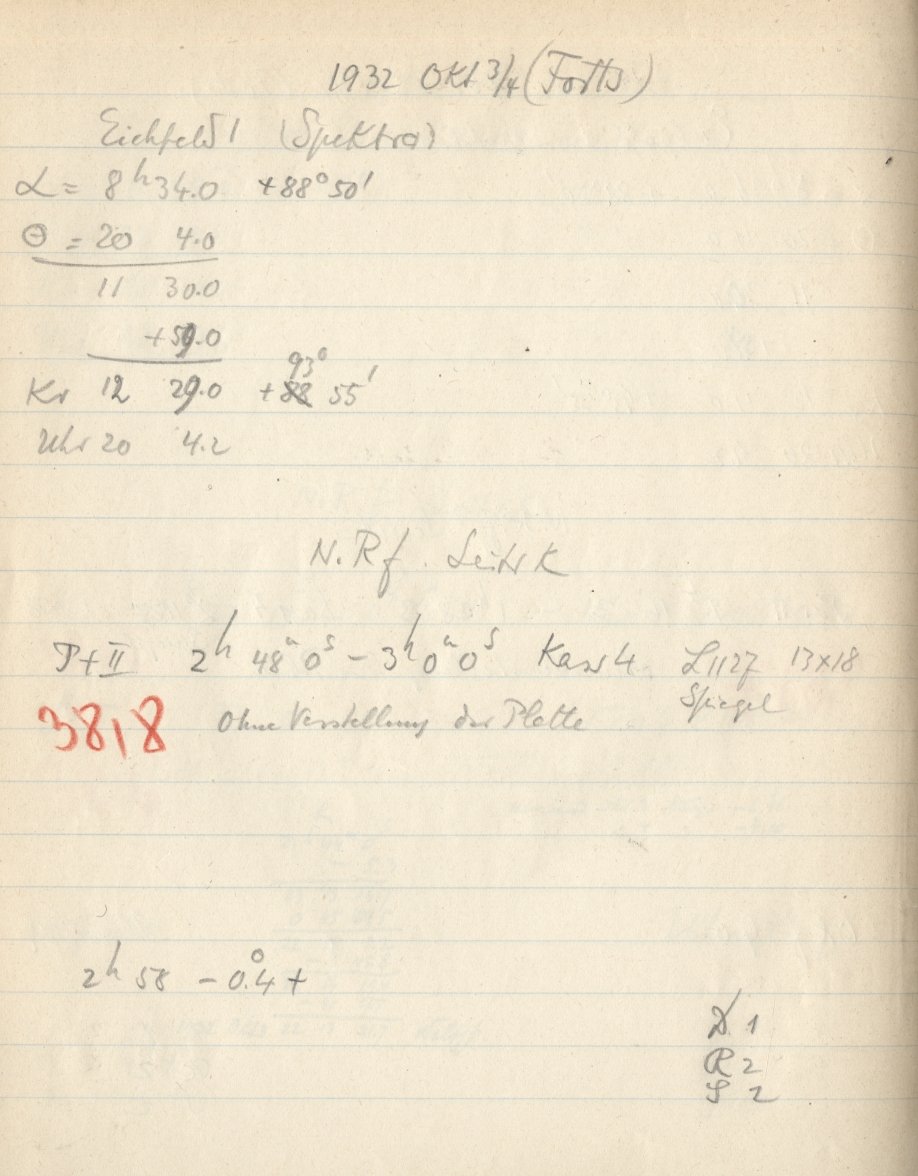 1932 Okt 3/4 (Forts)
Eichfeld 1 (Spektra)
α = 8h 34.0 +88° 50'
Θ = 20 4.0
11 30.0
+59.0
93°
Kr 12 29.0 +88 55'
Uhr 20 4.2
N. Rf. Leitr K
P+II 2h 48m 0s - 3h 0m 0s Kass 4 L1127 13x18
Spiegel
3818 Ohne Verstellung der Platte
2h 58 - 0.4° +
D 1
R 2
S 2